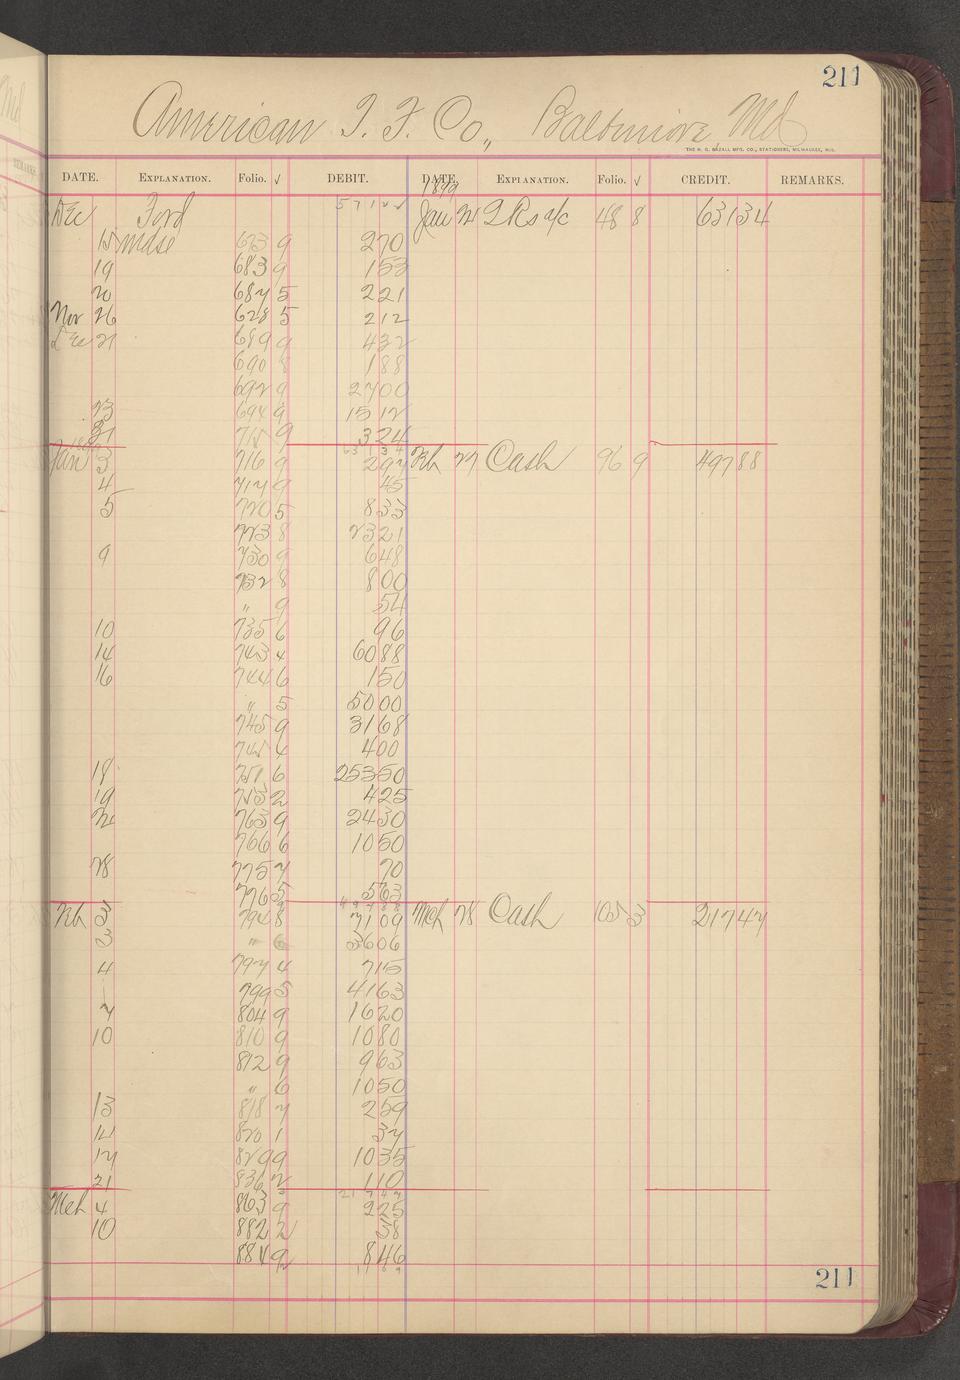 211
American T. F. Co., Baltimore, Md
THE H. G. RAZALL MFG. CO., STATIONERS, MILWAUKEE, WIS.
DATE. EXPLANATION. Folio. √ DEBIT. DATE. EXPLANATION. Folio. √ CREDIT. REMARKS.
1899
Dec Ford 57122 Jan 24 I Rs a/c 48 8 63134
15 mdse 673 9 270
19 683 9 153
20 687 5 221
Nov 26 628 5 212
Dec 21 689 9 432
690 8 188
692 9 2700
23 694 9 1512
31 715 9 324
63134
Jan 3 716 9 297 Feb 27 Cash 96 9 49788
4 717 9 45
5 720 5 833
723 8 2321
9 730 9 648
732 8 800
" 9 54
10 735 6 96
14 743 4 6088
16 744 6 150
" 5 5000
745 9 3168
745 6 400
18 751 6 25350
19 753 2 425
24 763 9 2430
766 6 1050
28 775 7 70
776 5 563
49788
Feb 3 794 8 7109 Mch 28 Cash 105 3 21747
3 " 6 3606
4 797 4 715
799 5 4163
7 804 9 1620
10 810 9 1080
812 9 963
" 6 1050
13 818 7 259
14 820 1 37
17 829 9 1035
21 836 2 110
21747
Mch 4 863 9 225
10 882 2 38
884 9 846
211